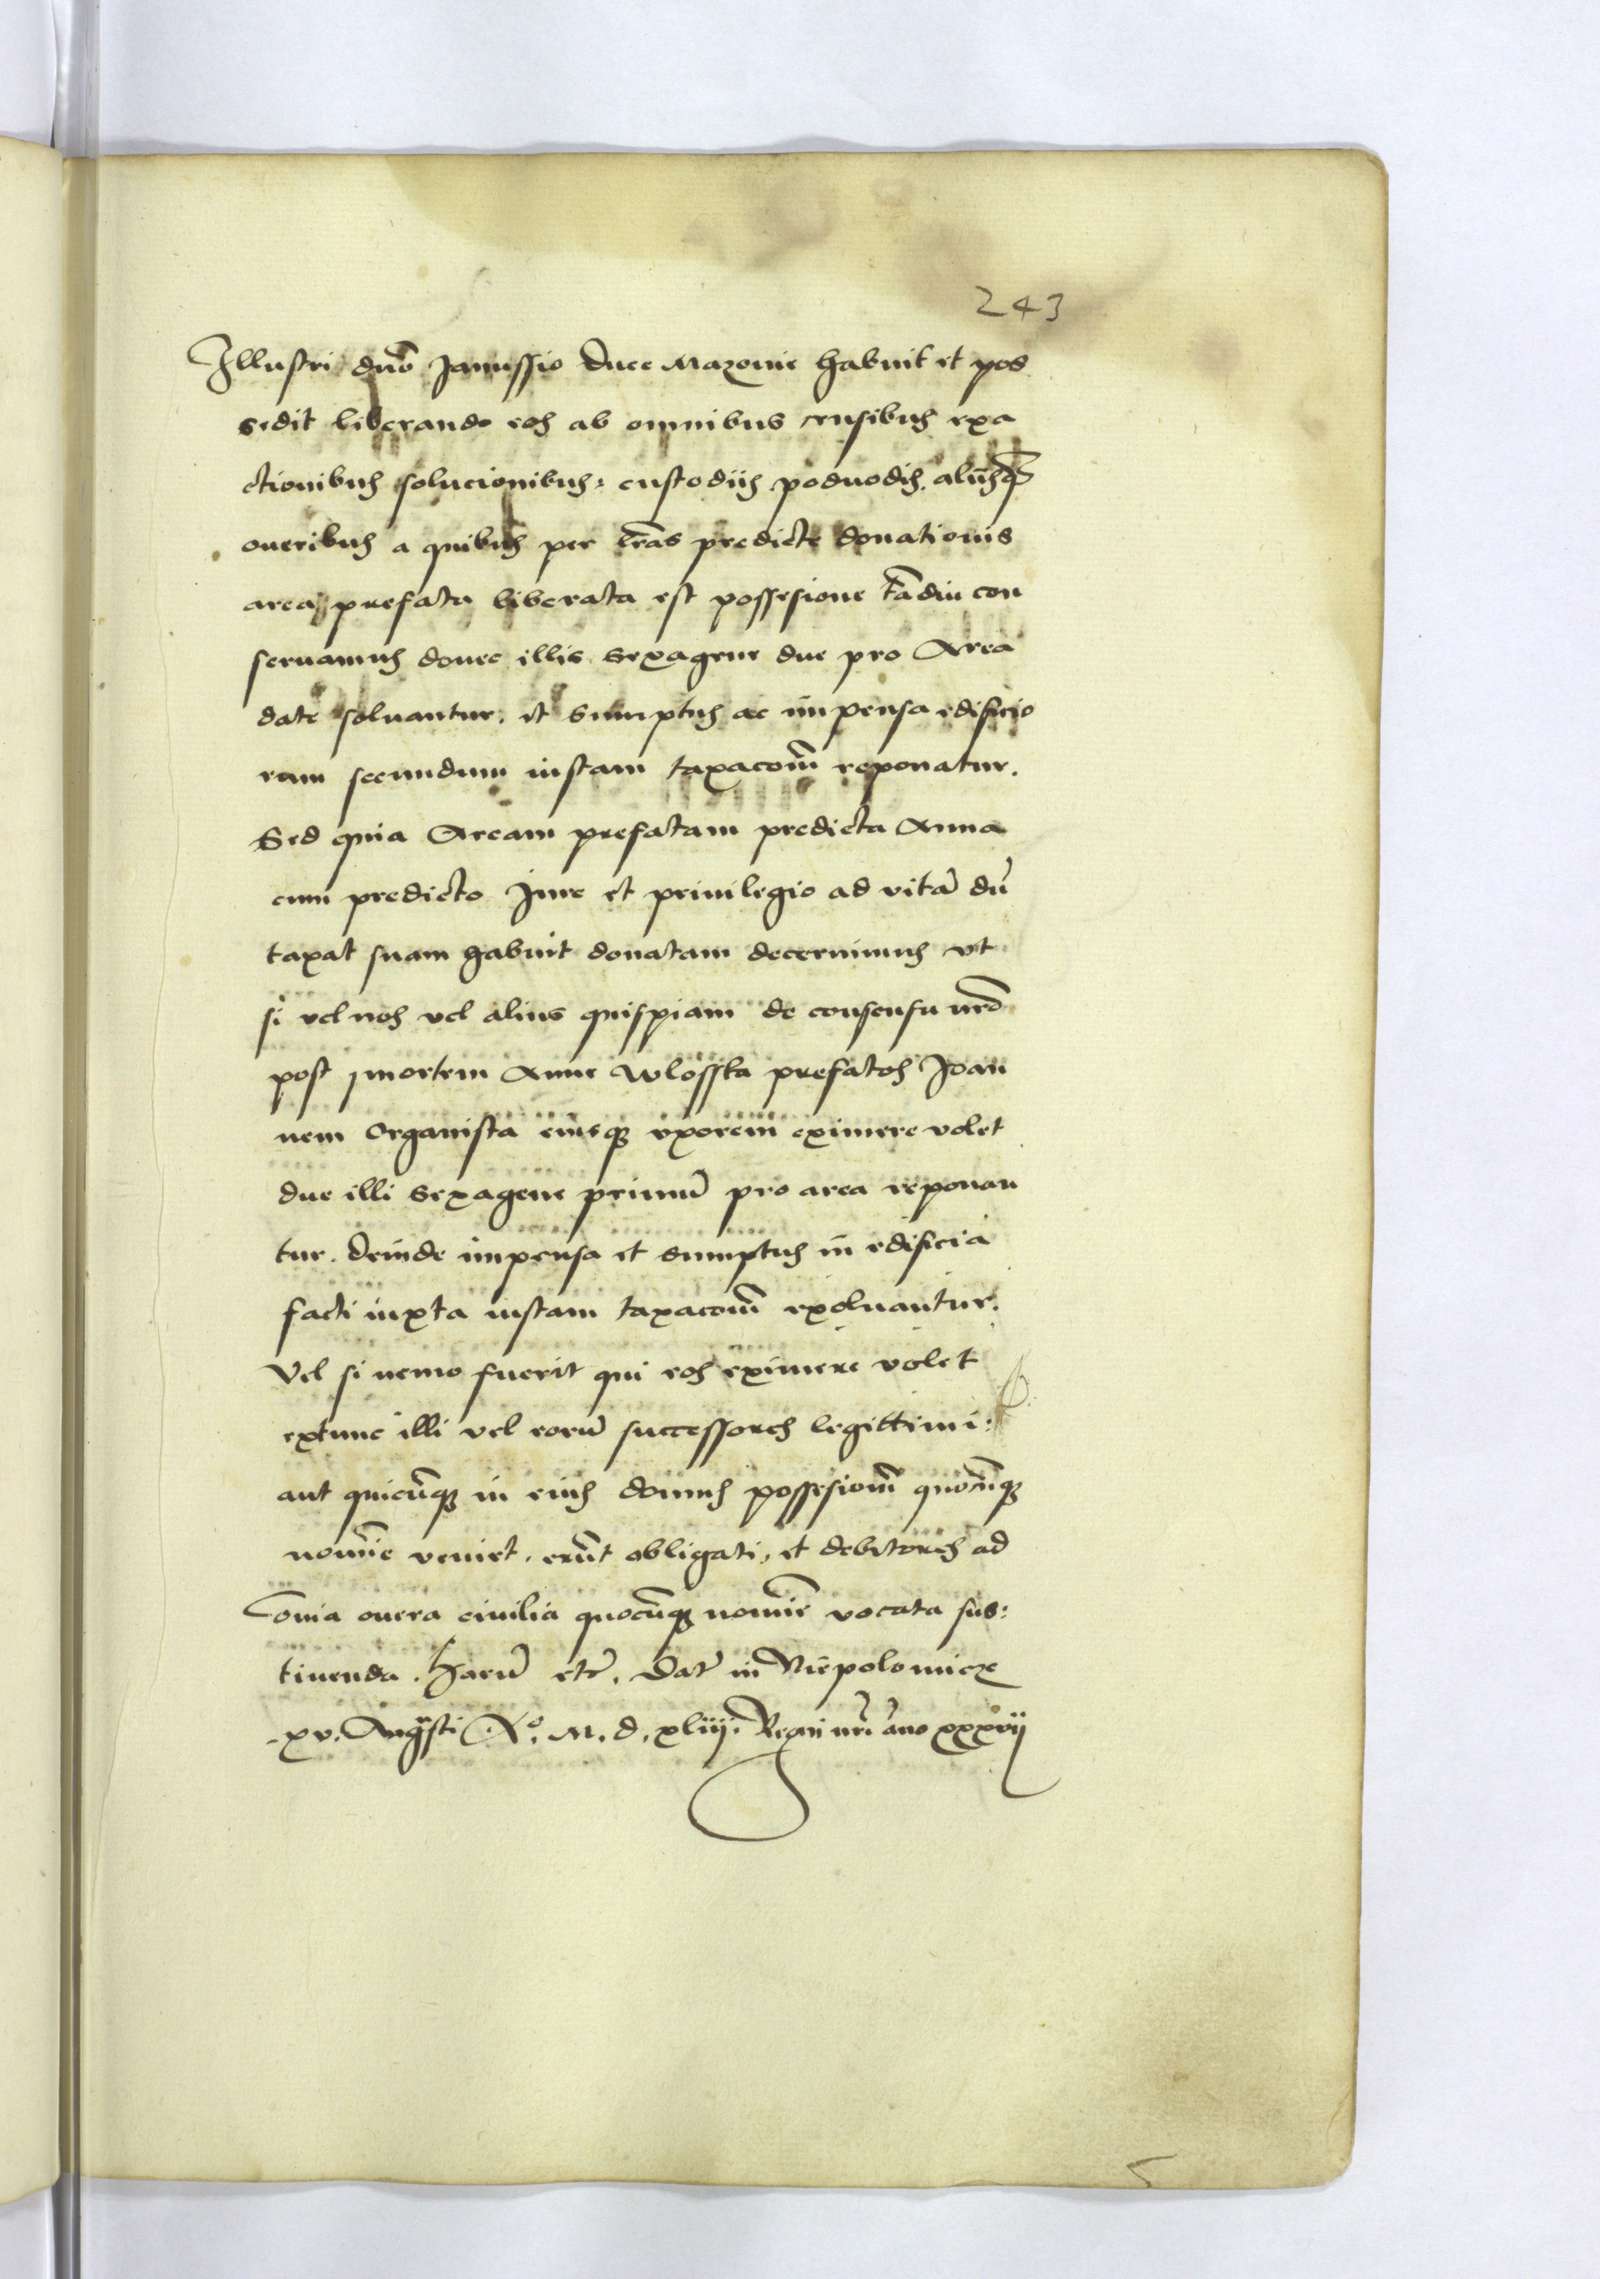 243
Illustri dno Janussio Duce Mazovie habuit et pos
sedit liberando eos ab omnibus censibus exa
ctionibus solucionibus: custodiis poduodis. aliisque
oneribus a quibus per lras predicte donationis
area prefata liberata est possesione tadiu con
seruamus donec illis sexagene due pro Area
date soluantur. et sumptus ac impensa edificio
rum secundum iustam taxacom reponatur.
Sed quia Aream prefatam predicta Anna
cum predicto Jure et priuilegio ad vita du
taxat suam habuit donatam decernimus vt
si vel nos vel alius quispiam de consensu nro
post mortem Anne Wlosska prefatos Joan
nem Organista eiusque vxorem eximere volet
due illi sexagene primu pro area reponan
tur. Deinde impensa et sumptus in edificia
facti iuxta iustam taxacom exoluantur.
Vel si nemo fuerit qui eos eximere volet
extunc illi vel eoru successores legittimi:
aut quicuque in eius domus possesiom quocuque
nomie veniet. erut obligati, et debitores ad
omia onera ciuilia quocuque nomie vocata sus:
tinenda. Haru etc. Dat in Niepolomicze
.xv. Augusti Ao. M. d. xliiij. Regni nri ano xxxvij